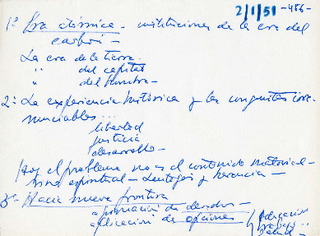 2/1/51 -486-
1º Era atómica - instituciones de la era del
carbón -
La era de la tierra.
" del capital
" del hombre -
2: La experiencia histórica y las conquistas irre-
nunciables...
libertad
justicia
desarrollo -
Hoy el problema no es el contenido material -
sino espiritual - Liturgia y herencia -
3º - Hacia nueva frontera
afirmación de derechos -
aplicación de opciones